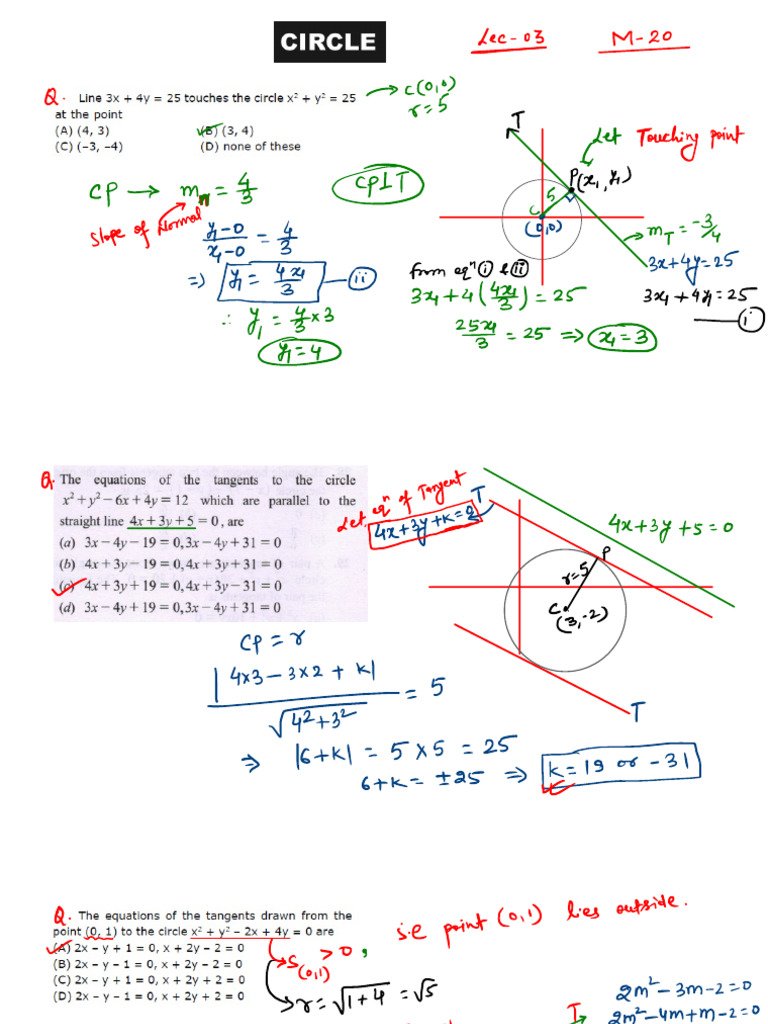 CIRCLE
Lec-03 M-20
Q. Line 3x + 4y = 25 touches the circle x² + y² = 25
at the point
(A) (4, 3) (B) (3, 4)
(C) (–3, –4) (D) none of these
→ C(0,0)
r = 5
T
Let Touching point
P(x₁, y₁)
5
C
(0,0)
m_T = -3/4
3x+4y=25
3x₁+4y₁=25
—(i)
CP → m_N = 4/3
CP⊥T
Slope of Normal
(y₁-0)/(x₁-0) = 4/3
⇒ y₁ = 4x₁/3 —(ii)
∴ y₁ = 4/3 × 3
y₁ = 4
from eqⁿ (i) & (ii)
3x₁ + 4(4x₁/3) = 25
25x₁/3 = 25 ⇒ x₁ = 3
Q. The equations of the tangents to the circle
x² + y² – 6x + 4y = 12 which are parallel to the
straight line 4x + 3y + 5 = 0, are
(a) 3x – 4y – 19 = 0, 3x – 4y + 31 = 0
(b) 4x + 3y – 19 = 0, 4x + 3y + 31 = 0
(c) 4x + 3y + 19 = 0, 4x + 3y – 31 = 0
(d) 3x – 4y + 19 = 0, 3x – 4y + 31 = 0
Let eqⁿ of Tangent
4x+3y+k=0
T
4x+3y+5=0
P
r=5
C
(3,-2)
T
CP = r
|4×3-3×2+k| / √(4²+3²) = 5
⇒ |6+k| = 5×5 = 25
6+k = ±25 ⇒ k = 19 or -31
Q. The equations of the tangents drawn from the
point (0, 1) to the circle x² + y² – 2x + 4y = 0 are
(A) 2x – y + 1 = 0, x + 2y – 2 = 0
(B) 2x – y – 1 = 0, x + 2y – 2 = 0
(C) 2x – y + 1 = 0, x + 2y + 2 = 0
(D) 2x – y – 1 = 0, x + 2y + 2 = 0
S(0,1) > 0, i.e point (0,1) lies outside.
r = √(1+4) = √5
2m²-3m-2=0
T
2m²-4m+m-2=0